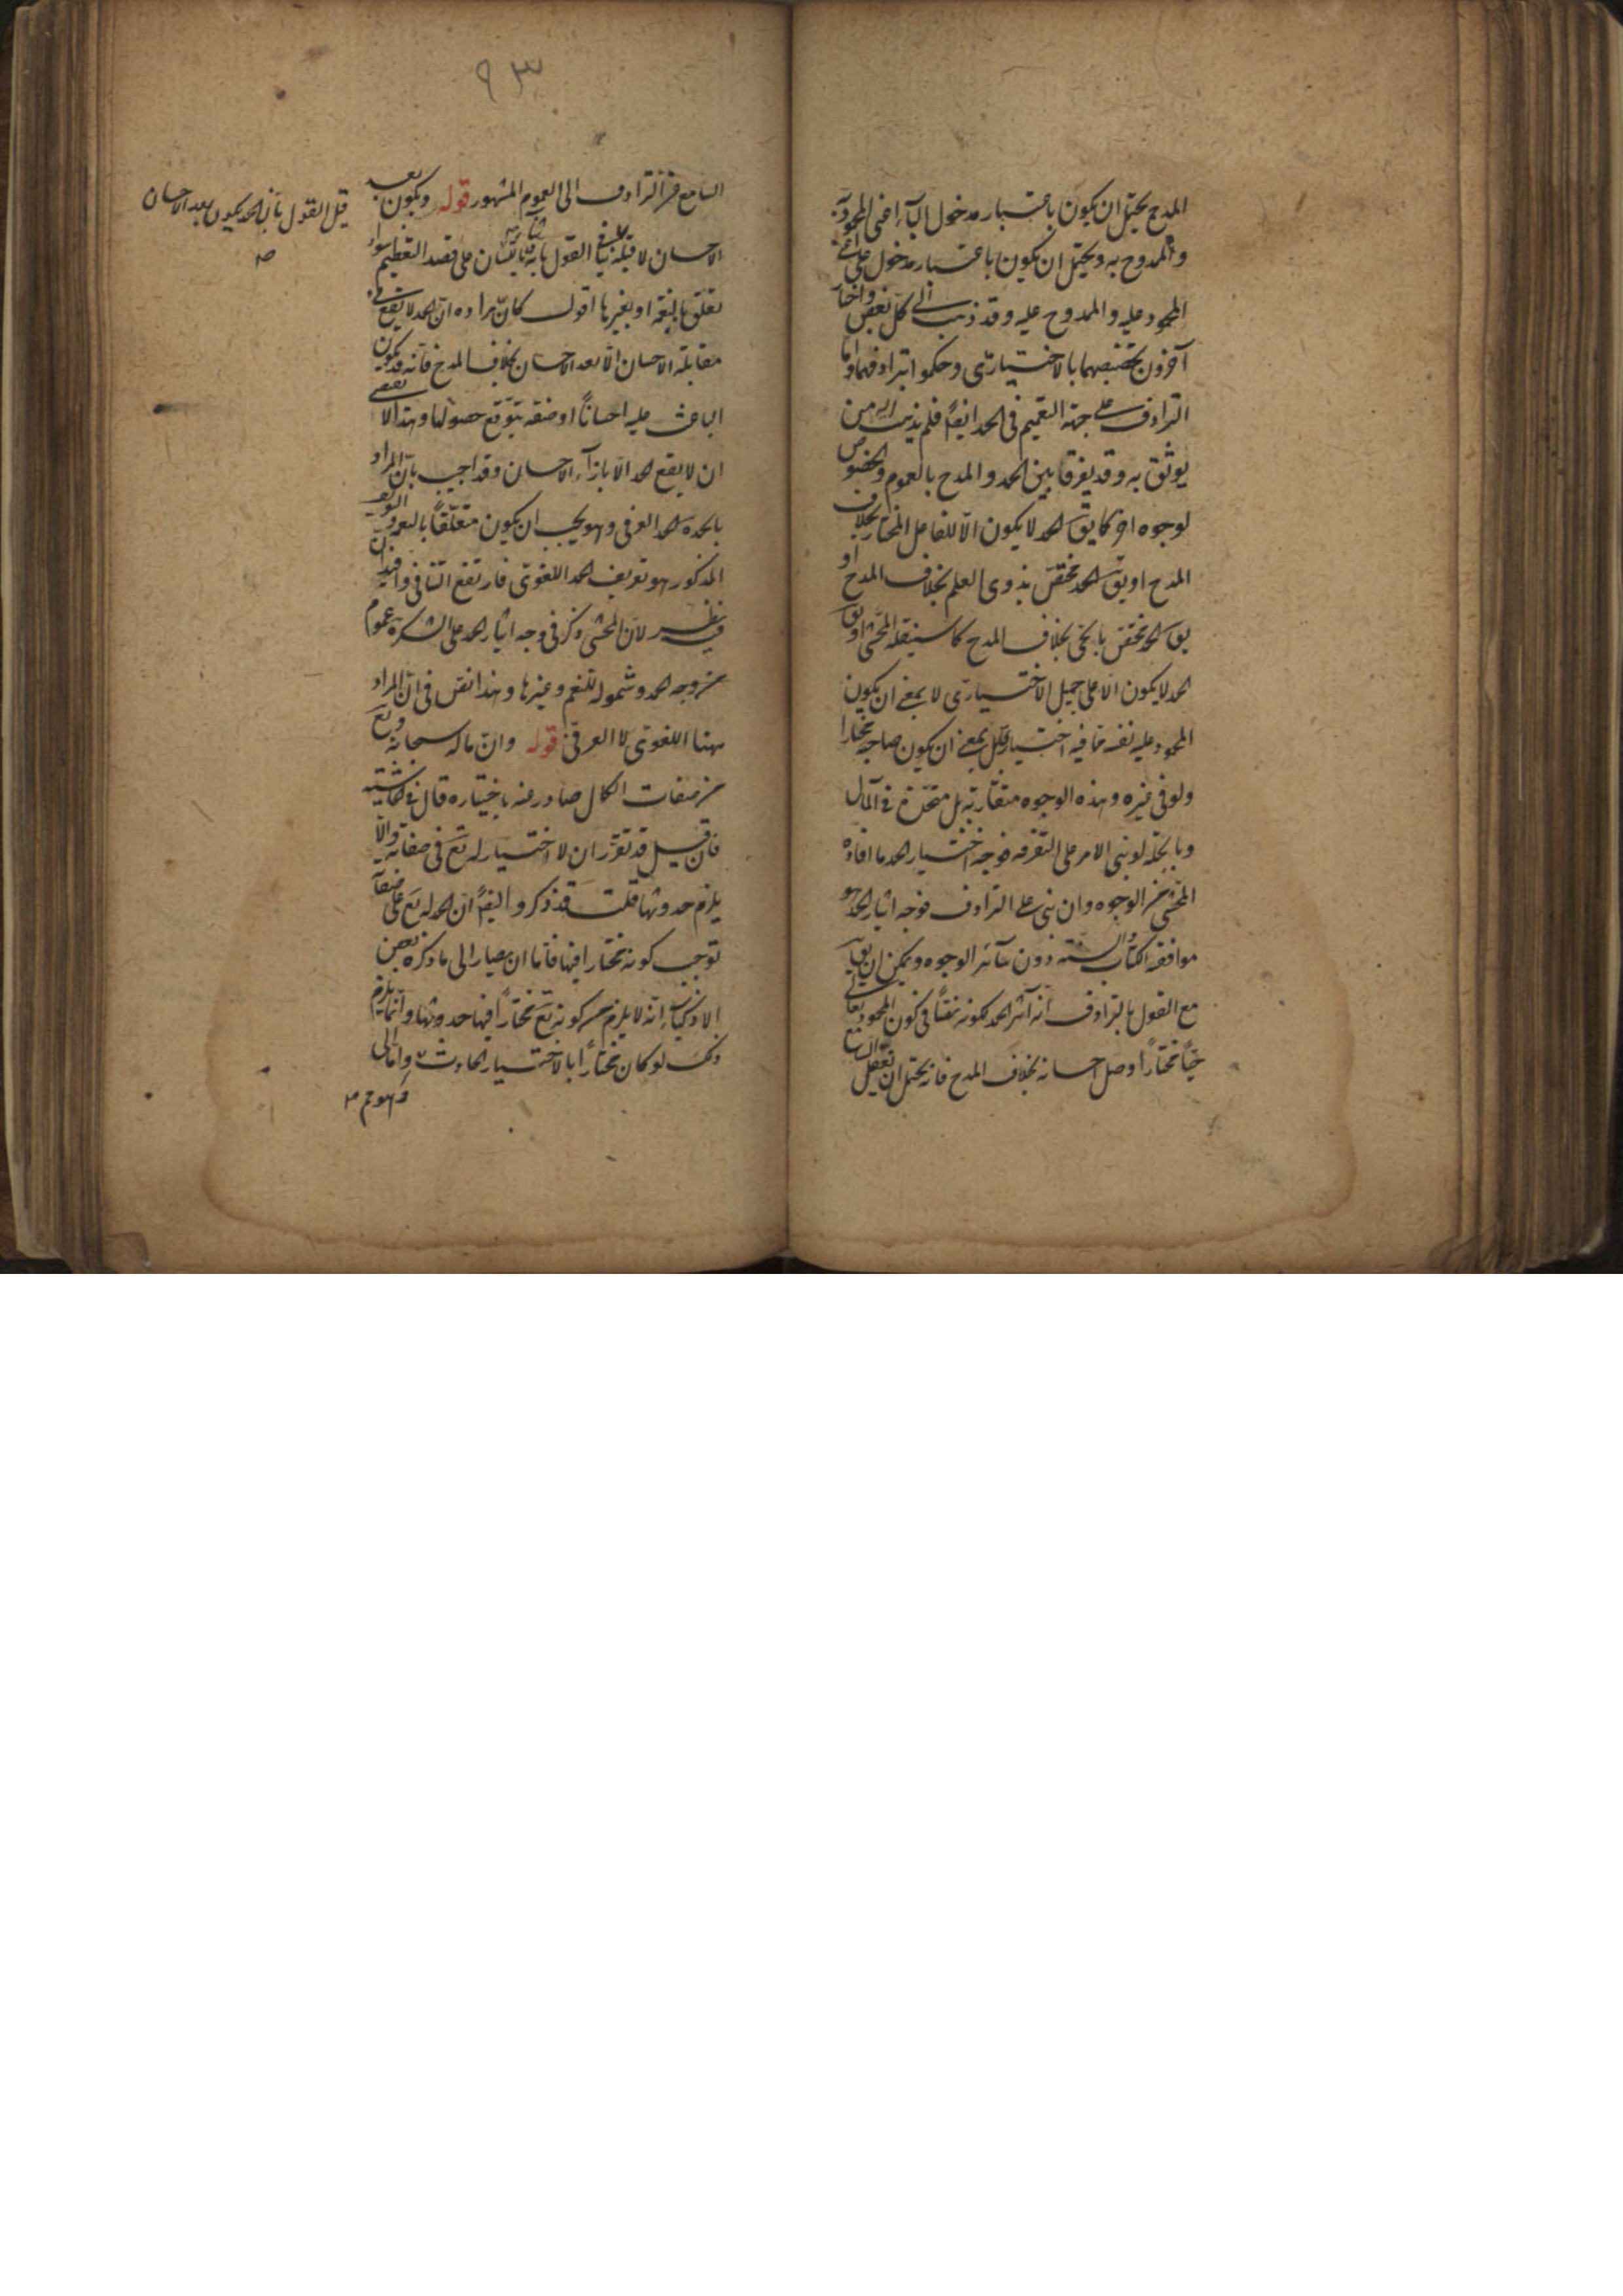 المدح يحتمل ان يكون باعتبار مدخول الباء اعنى المحمود به
والممدوح به ويحتمل ان يكون باعتبار مدخول على اعنى
المحمود عليه والممدوح عليه وقد ذهب الى كل بعض واختار
آخرون تخصيصهما بالاختيارى وحكموا بترادفهما واما
الترادف على جهة التعميم فى الحمد ايضا فلم يذهب اليه من
يوثق به وقد يفرق بين الحمد والمدح بالعموم والخصوص
لوجوه اخر كما يق الحمد لا يكون الا للفاعل المختار بخلاف
المدح او يق الحمد مختص بذوى العلم بخلاف المدح او
يق الحمد مختص بالحى بخلاف المدح كما سينقله المحشى او يق
الحمد لا يكون الا على جميل الاختيارى لا بمعنى ان يكون
المحمود عليه نفسه مما فيه اختيار بل بمعنى ان يكون صاحبه مختارا
ولو فى غيره وهذه الوجوه متقاربة بل متحدة فى المآل
وبالجملة لو بنى الامر على التفرقه فوجه اختيار الحمد ما افاده
المحشى من الوجوه وان بنى على الترادف فوجه ايثار الحمد هو
موافقة الكتاب والسنة دون سائر الوجوه ويمكن ان يق
مع القول بالترادف انه آثر الحمد لكونه نصا فى كون المحمود تعالى
حيا مختارا وصل احسانه بخلاف المدح فانه يحتمل ان ينتقل
السامع
٩٣
السامع من الترادف الى العموم المشهور قوله ويكون بعد
الاحسان لا قبله القول بانه ثناء باللسان على قصد التعظيم سواء
تعلق بالنعمة او بغيرها اقول كان مراده ان الحمد لا يقع فى
مقابلة الاحسان الا بعد الاحسان بخلاف المدح فانه قد يكون
الباعث عليه احسانا او صفة يتوقع حصولها وهذا لا يقتضى
ان لا يقع الحمد الا بازاء الاحسان وقد اجيب بان المراد
بالحمد الحمد العرفى وهو يجب ان يكون متعلقا بالنعمة والتعريف
المذكور هو تعريف الحمد اللغوى فارتفع التنافى واقول
فيه نظر لان المحشى ذكر فى وجه ايثار الحمد على الشكر عموم
الحمد وشموله للنعم وغيرها وهذا نص فى ان المراد
ههنا اللغوى لا العرفى قوله وان ماله سبحانه وتع
من صفات الكمال صادر عنه باختياره قال فى الحاشية
فان قيل قد تقرر ان لا اختيار له تع فى صفاته والا
يلزم حدوثها قلت قد ذكروا ايضا ان الحمد له تع على صفاته
توجب كونه مختارا فيها فاما ان يصار الى ما ذكره بعض
الاذكياء انه لا يلزم من كونه تع مختارا فيها حدوثها وانما يلزم
ذلك لو كان مختارا بالاختيار الحادث واما الى
قيل القول بان الحمد يكون بعد الاحسان
صح